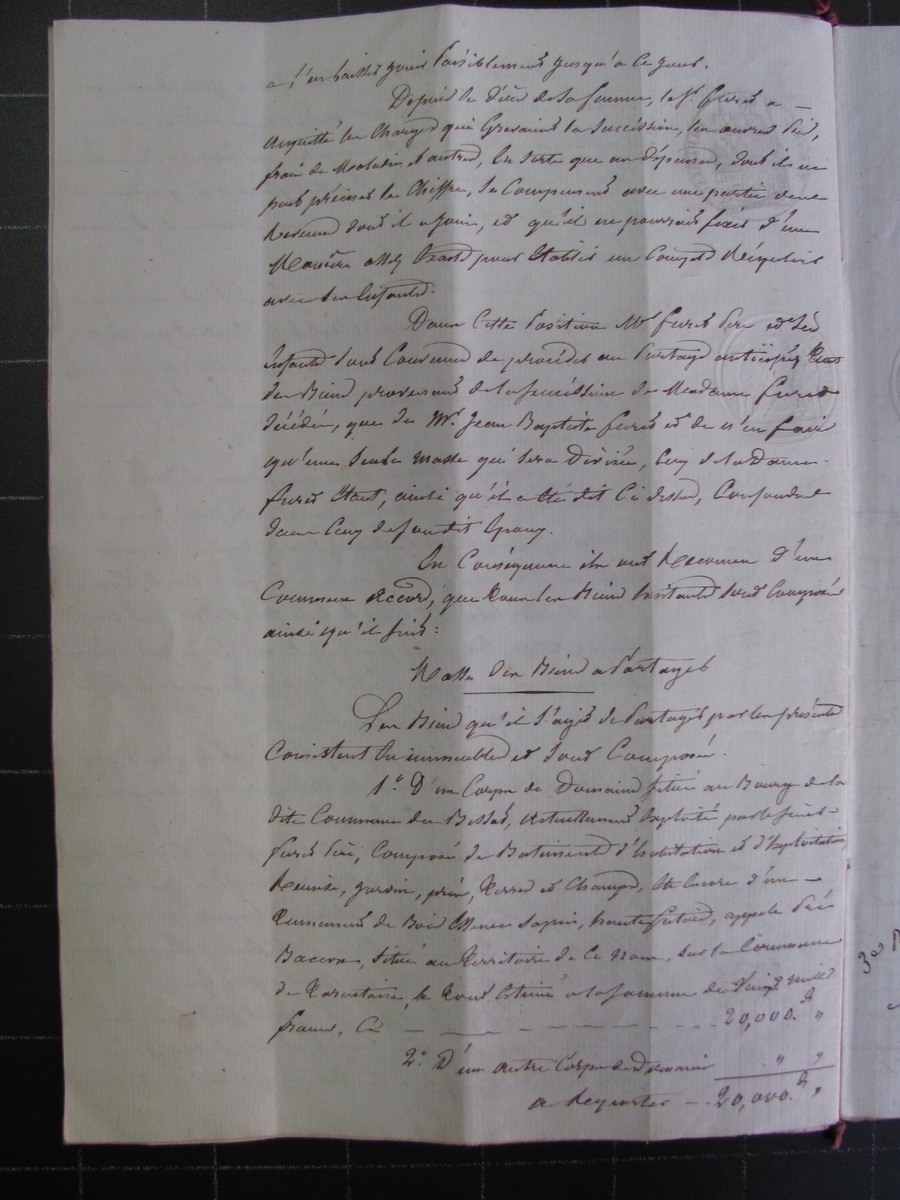 a l'en laisser jouir Paisiblement jusqu'à ce jour.
Depuis le décès de sa femme, le Sr. furet a
acquitté les charges qui Grevaient la succession, les autres
frais de Maladie & autres, En sorte que ces dépenses, dont il ne
peut préciser le Chiffre, se Compensent avec une partie des
Revenus dont il a joui, et qu'il ne pourrait fixer d'une
Manière assez Exacte pour Etablir un Compte Régulier
avec ses Enfants.
Dans Cette Position Mr furet Père et Ses
Enfants sont Convenus de procéder au Partage anticipé tant
des Biens provenant de la succession de Madame furet
décédée, que de Mr. Jean Baptiste furet et de n'en faire
qu'une seule masse qui sera Divisée, Ceux de la Dame
furet étant, ainsi qu'il a été dit Ci dessus, Confondus
dans Ceux de son dit Epoux.
En Conséquence ils ont Reconnu D'un
Commun accord, que tous les Biens Existants sont Composés
ainsi qu'il suit:
Masse des Biens a Partager
Les Biens qu'il s'agit de Partager par les présentes
Consistent En immeubles et sont Composés.
1o. D'un Corps de Domaine situé au Bourg de la
dite Commune du Bessat, actuellement Exploité par le sieur
furet Père, Composé de Batiments d'habitation et d'Exploitation
Réunis, jardin, prés, terres et Champs, Et Encore d'un
Tenement de Bois Essence sapin, haute futaie, appelé
Bacon, situé au Territoire de Ce Nom, sur la Commune
de Tarentaise, le tout Estimé a la somme de Vingt mille
francs, Ci — — — — — 20,000. fr "
2o. D'un autre Corps de Domaine " "
a Reporter — 20,000. fr "
3es